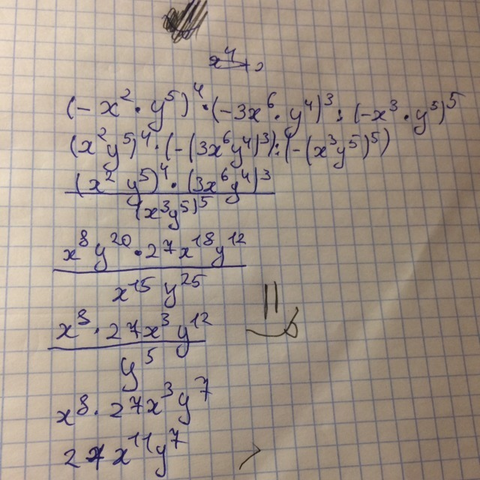 x⁴
(-x²·y⁵)⁴·(-3x⁶·y⁴)³:(-x³·y⁵)⁵
(x²y⁵)⁴·(-(3x⁶y⁴)³):(-(x³y⁵)⁵)
(x² y⁵)⁴·(3x⁶y⁴)³
(x³y⁵)⁵
x⁸y²⁰·27x¹⁸y¹²
x¹⁵y²⁵
x⁸·27x³y¹²
y⁵
x⁸·27x³y⁷
27x¹¹y⁷